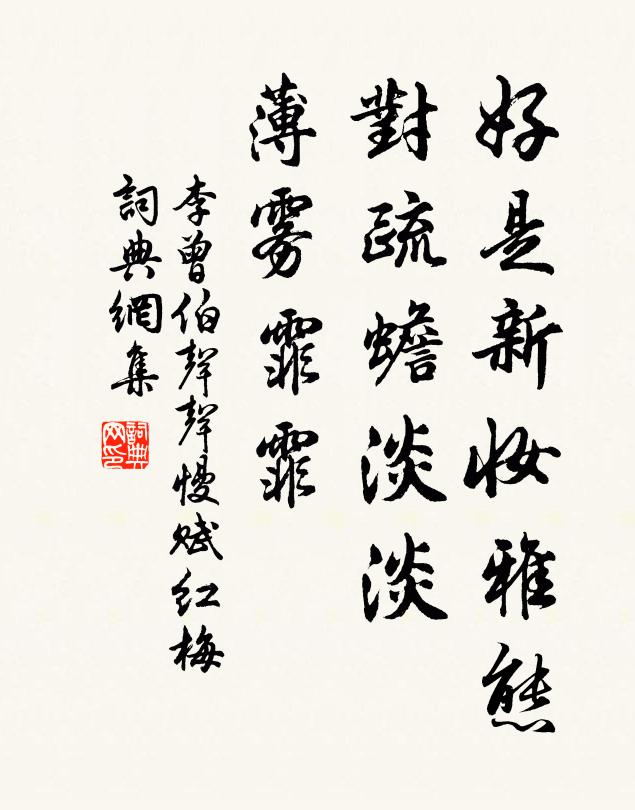 好是新妝雅態
對疏蟾淡淡
薄雾霏霏
李曾伯聲聲慢賦紅梅
詞典網集
詞典网印